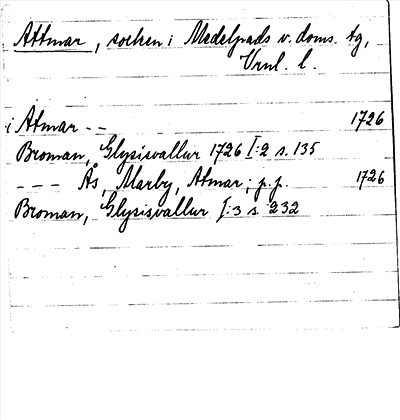 Attmar, socken i Medelpads v. doms. tg,
Vrnl. l.
i Atmar -- 1726
Broman, Glysisvallur 1726 I:2 s. 135
--- Ås, Marby, Atmar; p.p. 1726
Broman, Glysisvallur I:3 s 232